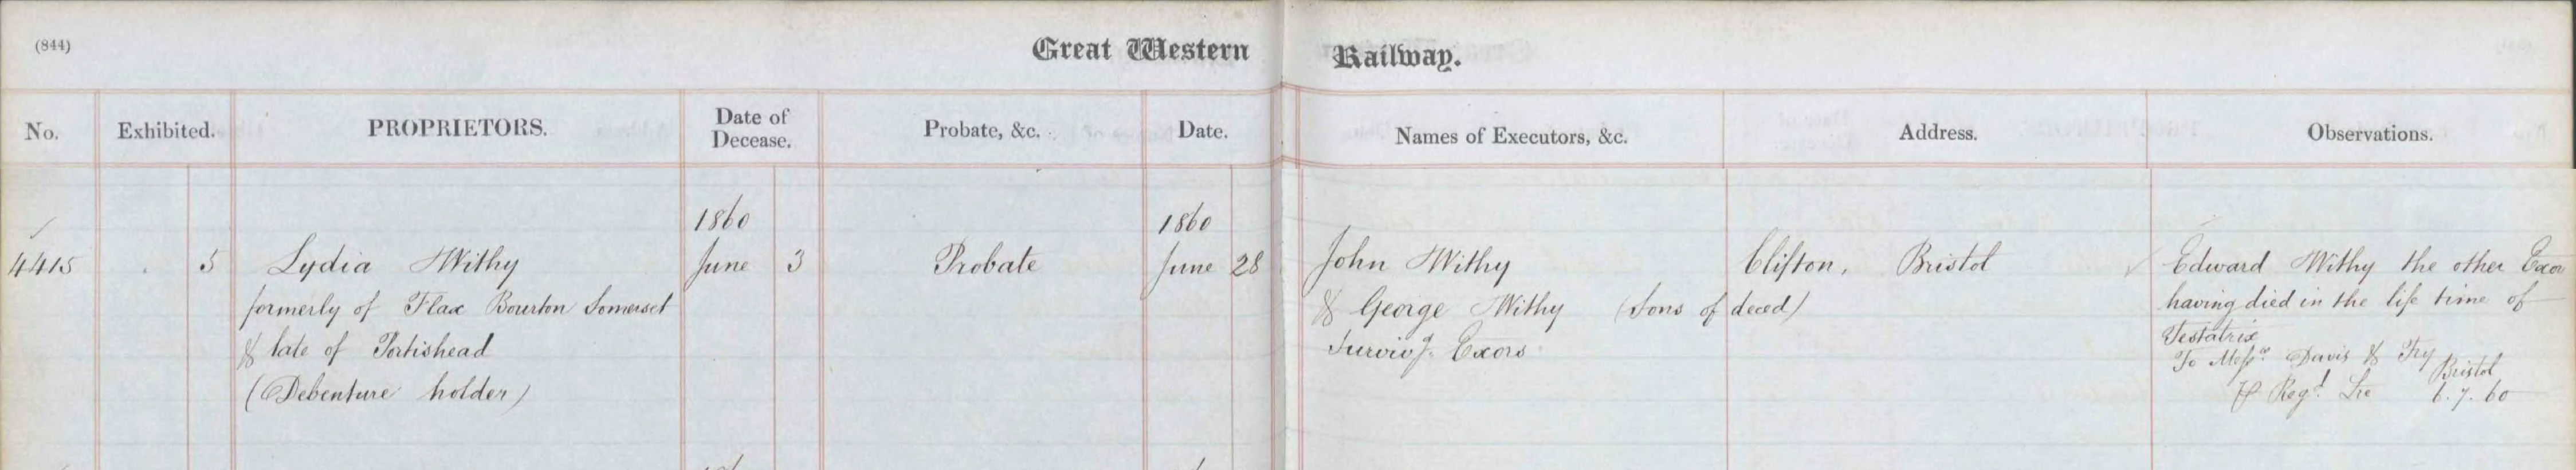 (844)
Great Western Railway.
No. Exhibited. PROPRIETORS. Date of Decease. Probate, &c. Date. Names of Executors, &c. Address. Observations.
1860 1860
4415 5 Lydia Withy June 3 Probate June 28 John Withy Clifton, Bristol Edward Withy the other Exor
formerly of Flax Bourton Somerset & George Withy (Sons of deced) having died in the life time of
& late of Portishead Survivg. Exors Testatrix
To Messrs. Davis & Fry
(Debenture holder) Bristol
Regd. 6.7.60